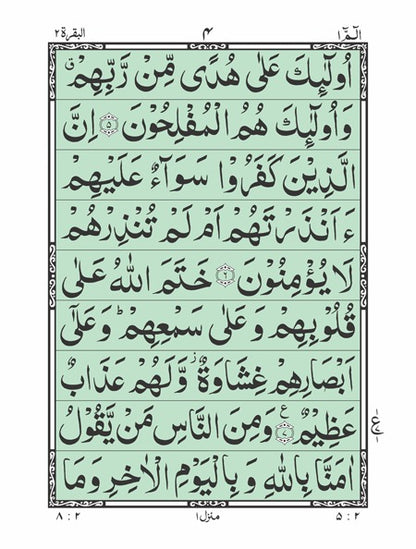 الٓمّٓ ١ ۴ البقرة ٢
اُولٰٓئِكَ عَلٰى هُدًى مِّنْ رَّبِّهِمْ ۗ
وَاُولٰٓئِكَ هُمُ الْمُفْلِحُوْنَ ۝٥ اِنَّ
الَّذِيْنَ كَفَرُوْا سَوَآءٌ عَلَيْهِمْ
ءَاَنْذَرْتَهُمْ اَمْ لَمْ تُنْذِرْهُمْ
لَا يُؤْمِنُوْنَ ۝٦ خَتَمَ اللّٰهُ عَلٰى
قُلُوْبِهِمْ وَعَلٰى سَمْعِهِمْ ؕ وَعَلٰٓى
اَبْصَارِهِمْ غِشَاوَةٌ ز وَّلَهُمْ عَذَابٌ
عَظِيْمٌ ۝٧ ع وَمِنَ النَّاسِ مَنْ يَّقُوْلُ
اٰمَنَّا بِاللّٰهِ وَ بِالْيَوْمِ الْاٰخِرِ وَمَا
ع
٥ : ٢ منزل ١ ٨ : ٢